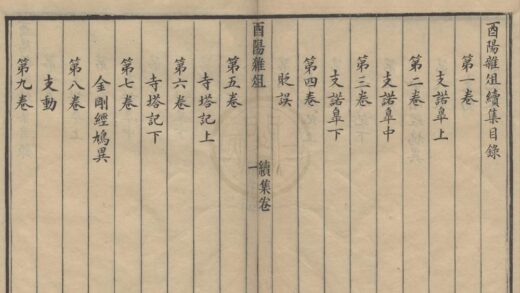 酉陽雜俎續集目錄
第一卷
支諾臯上
第二卷
支諾臯中
第三卷
支諾臯下
第四卷
貶誤
酉陽雜俎
續集卷
一
第五卷
寺塔記上
第六卷
寺塔記下
第七卷
金剛經鳩異
第八卷
支動
第九卷